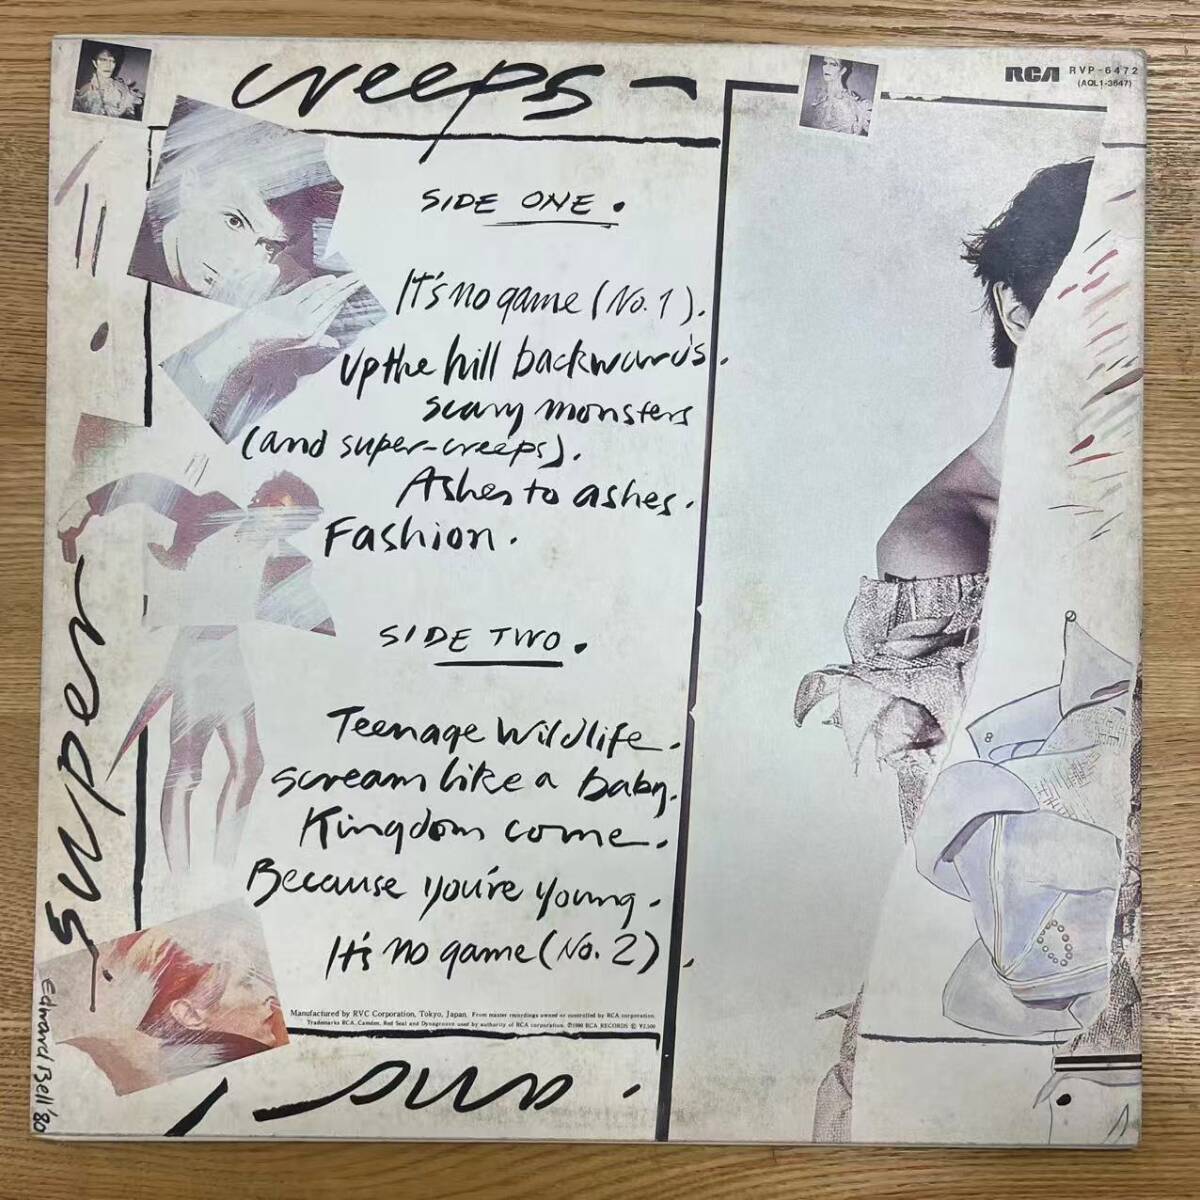 creeps -
RCA RVP-6472
(AQL1-3647)
SIDE ONE.
It's no game (No. 1).
Up the hill backwards.
scary monsters
(and super-creeps).
Ashes to ashes.
Fashion.
SIDE TWO.
Teenage Wildlife.
scream like a Baby.
Kingdom come.
Because you're young.
It's no game (No. 2).
Manufactured by RVC Corporation, Tokyo, Japan. From master recordings owned or controlled by RCA corporation.
Trademarks RCA, Camden, Red Seal and Dynagroove used by authority of RCA corporation. ℗1980 RCA RECORDS © ¥2,500
super
and
Edward Bell '80